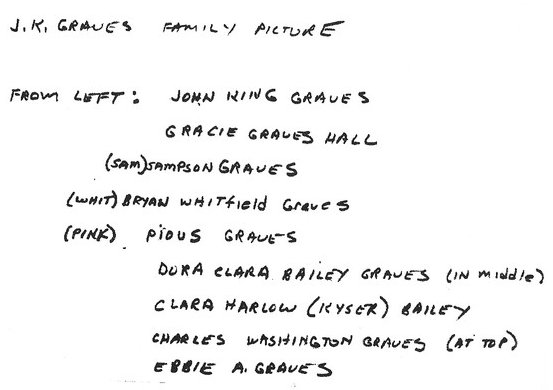 J.K. GRAVES FAMILY PICTURE
FROM LEFT: JOHN KING GRAVES
GRACIE GRAVES HALL
(SAM) SAMPSON GRAVES
(WHIT) BRYAN WHITfield GRAVES
(PINK) PIOUS GRAVES
DORA CLARA BAILEY GRAVES (IN middle)
CLARA HARLOW (KYSER) BAILEY
CHARLES WASHINGTON GRAVES (AT TOP)
EBBIE A. GRAVES